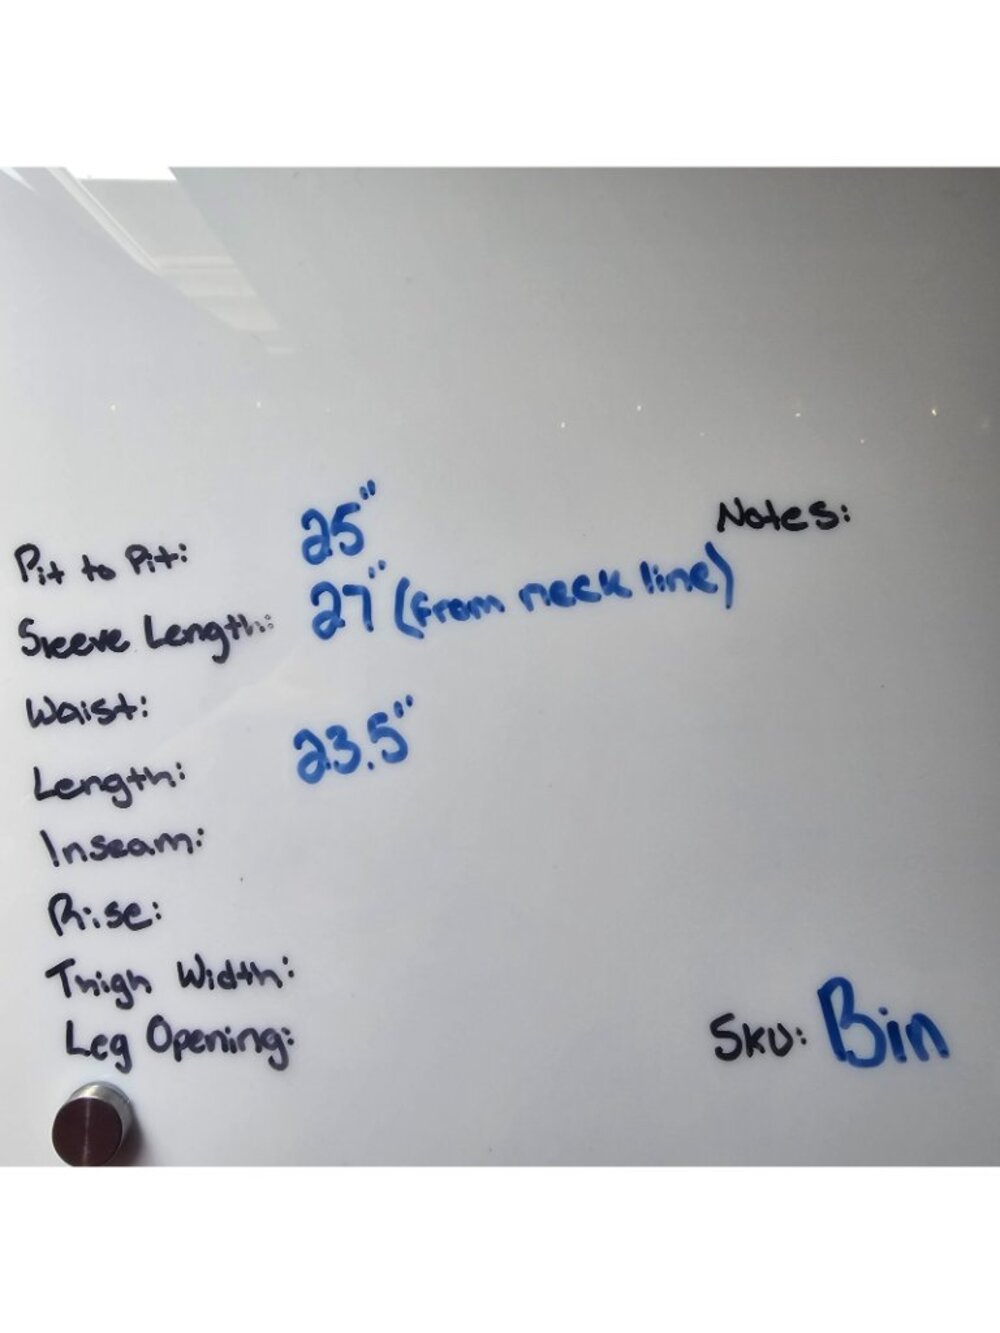 Pit to Pit: 25"
Notes:
Sleeve Length: 27" (from neck line)
Waist:
Length: 23.5"
Inseam:
Rise:
Thigh Width:
Leg Opening:
SKU: Bin